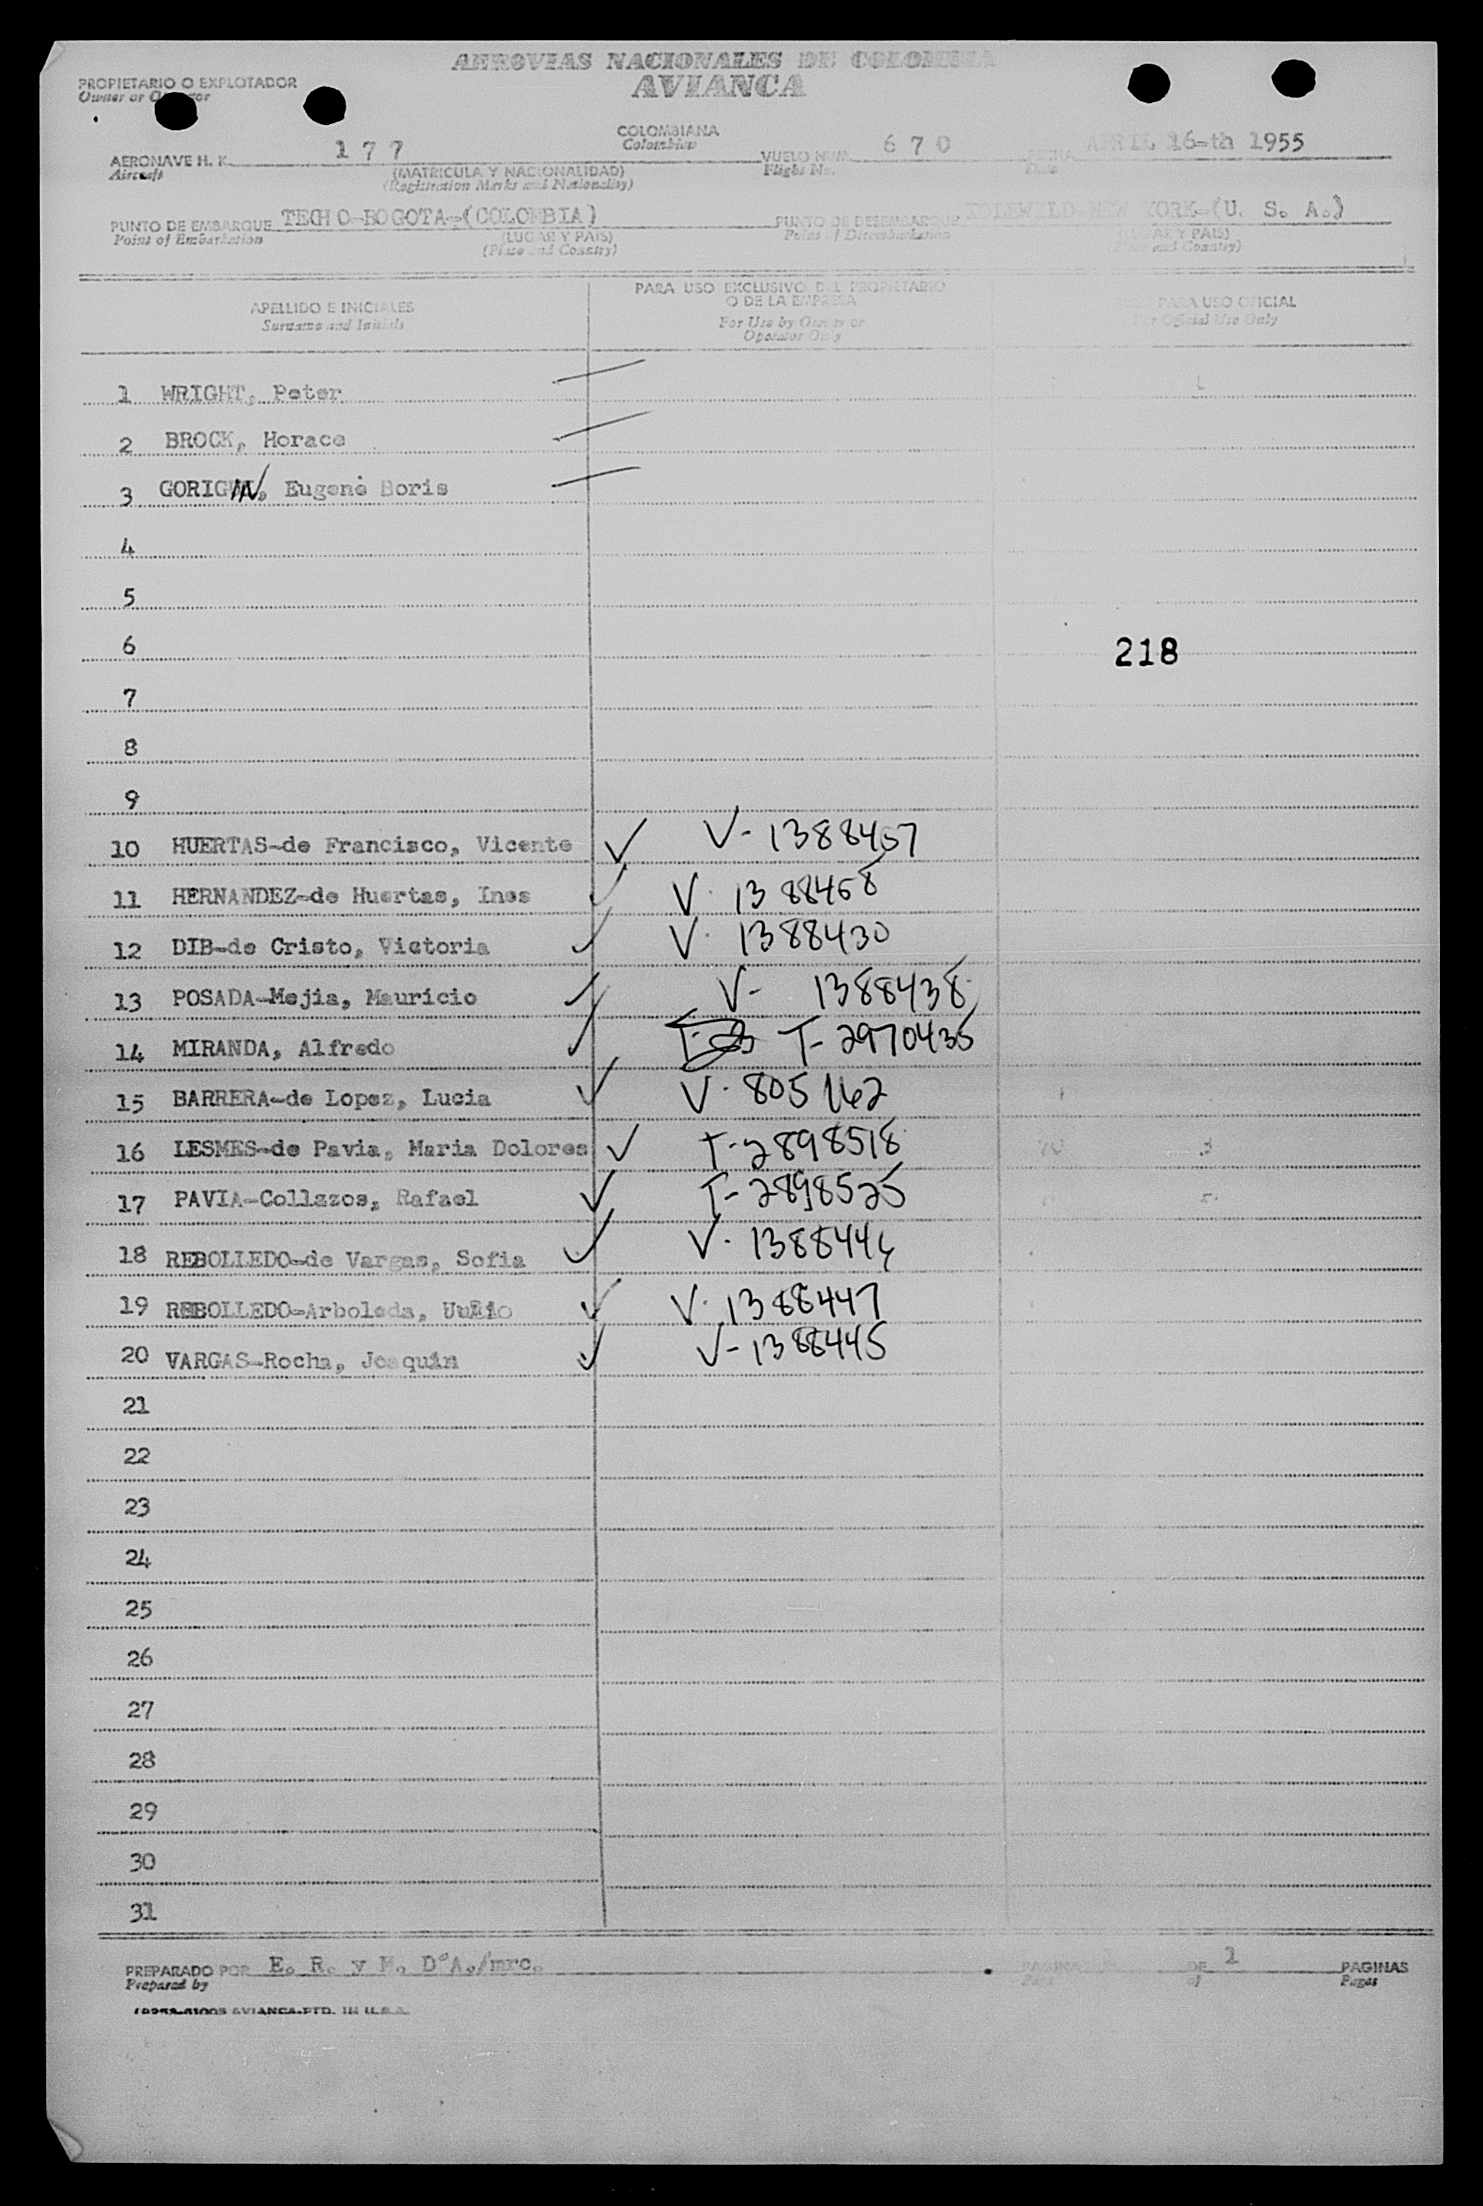 AEROVIAS NACIONALES DE COLOMBIA
AVIANCA
PROPIETARIO O EXPLOTADOR
Owner or
COLOMBIANA
Colombian
AERONAVE H. K. 177
Aircraft
(MATRICULA Y NACIONALIDAD)
(Registration Marks and Nationality)
VUELO NUM. 670
Flight No.
FECHA APRIL 16-th 1955
Date
PUNTO DE EMBARQUE TECHO-BOGOTA-(COLOMBIA)
Point of Embarkation
(LUGAR Y PAIS)
(Place and Country)
PUNTO DE DESEMBARQUE IDLEWILD-NEW YORK-(U. S. A.)
Point of Disembarkation
(LUGAR Y PAIS)
(Place and Country)
APELLIDO E INICIALES
Surname and Initials
PARA USO EXCLUSIVO DEL PROPIETARIO
O DE LA EMPRESA
For Use by Owner or
Operator Only
PARA USO OFICIAL
For Official Use Only
1 WRIGHT, Peter
2 BROCK, Horace
3 Eugene Boris
4
5
6 218
7
8
9
10 HUERTAS-de Francisco, Vicente ✓ V- 1388457
11 HERNANDEZ-de Huertas, Ines ✓ V- 1388458
12 DIB-de Cristo, Victoria ✓ V- 1388430
13 POSADA-Mejia, Mauricio ✓ V- 1388438
14 MIRANDA, Alfredo ✓ T- 2970435
15 BARRERA-de Lopez, Lucia ✓ V- 805162
16 LESMES-de Pavia, Maria Dolores ✓ T-2898518
17 PAVIA-Collazos, Rafael ✓ T-2898525
18 REBOLLEDO-de Vargas, Sofia ✓ V-
19 REBOLLEDO-Arboleda, ✓ V- 1388447
20 VARGAS-Rocha, Joaquin ✓ V-1388445
21
22
23
24
25
26
27
28
29
30
31
PREPARADO POR E. R. y M. D'A./mrc.
Prepared by
PAGINA DE 1 PAGINAS
Page of Pages
AVIANCA-PTD. IN U.S.A.